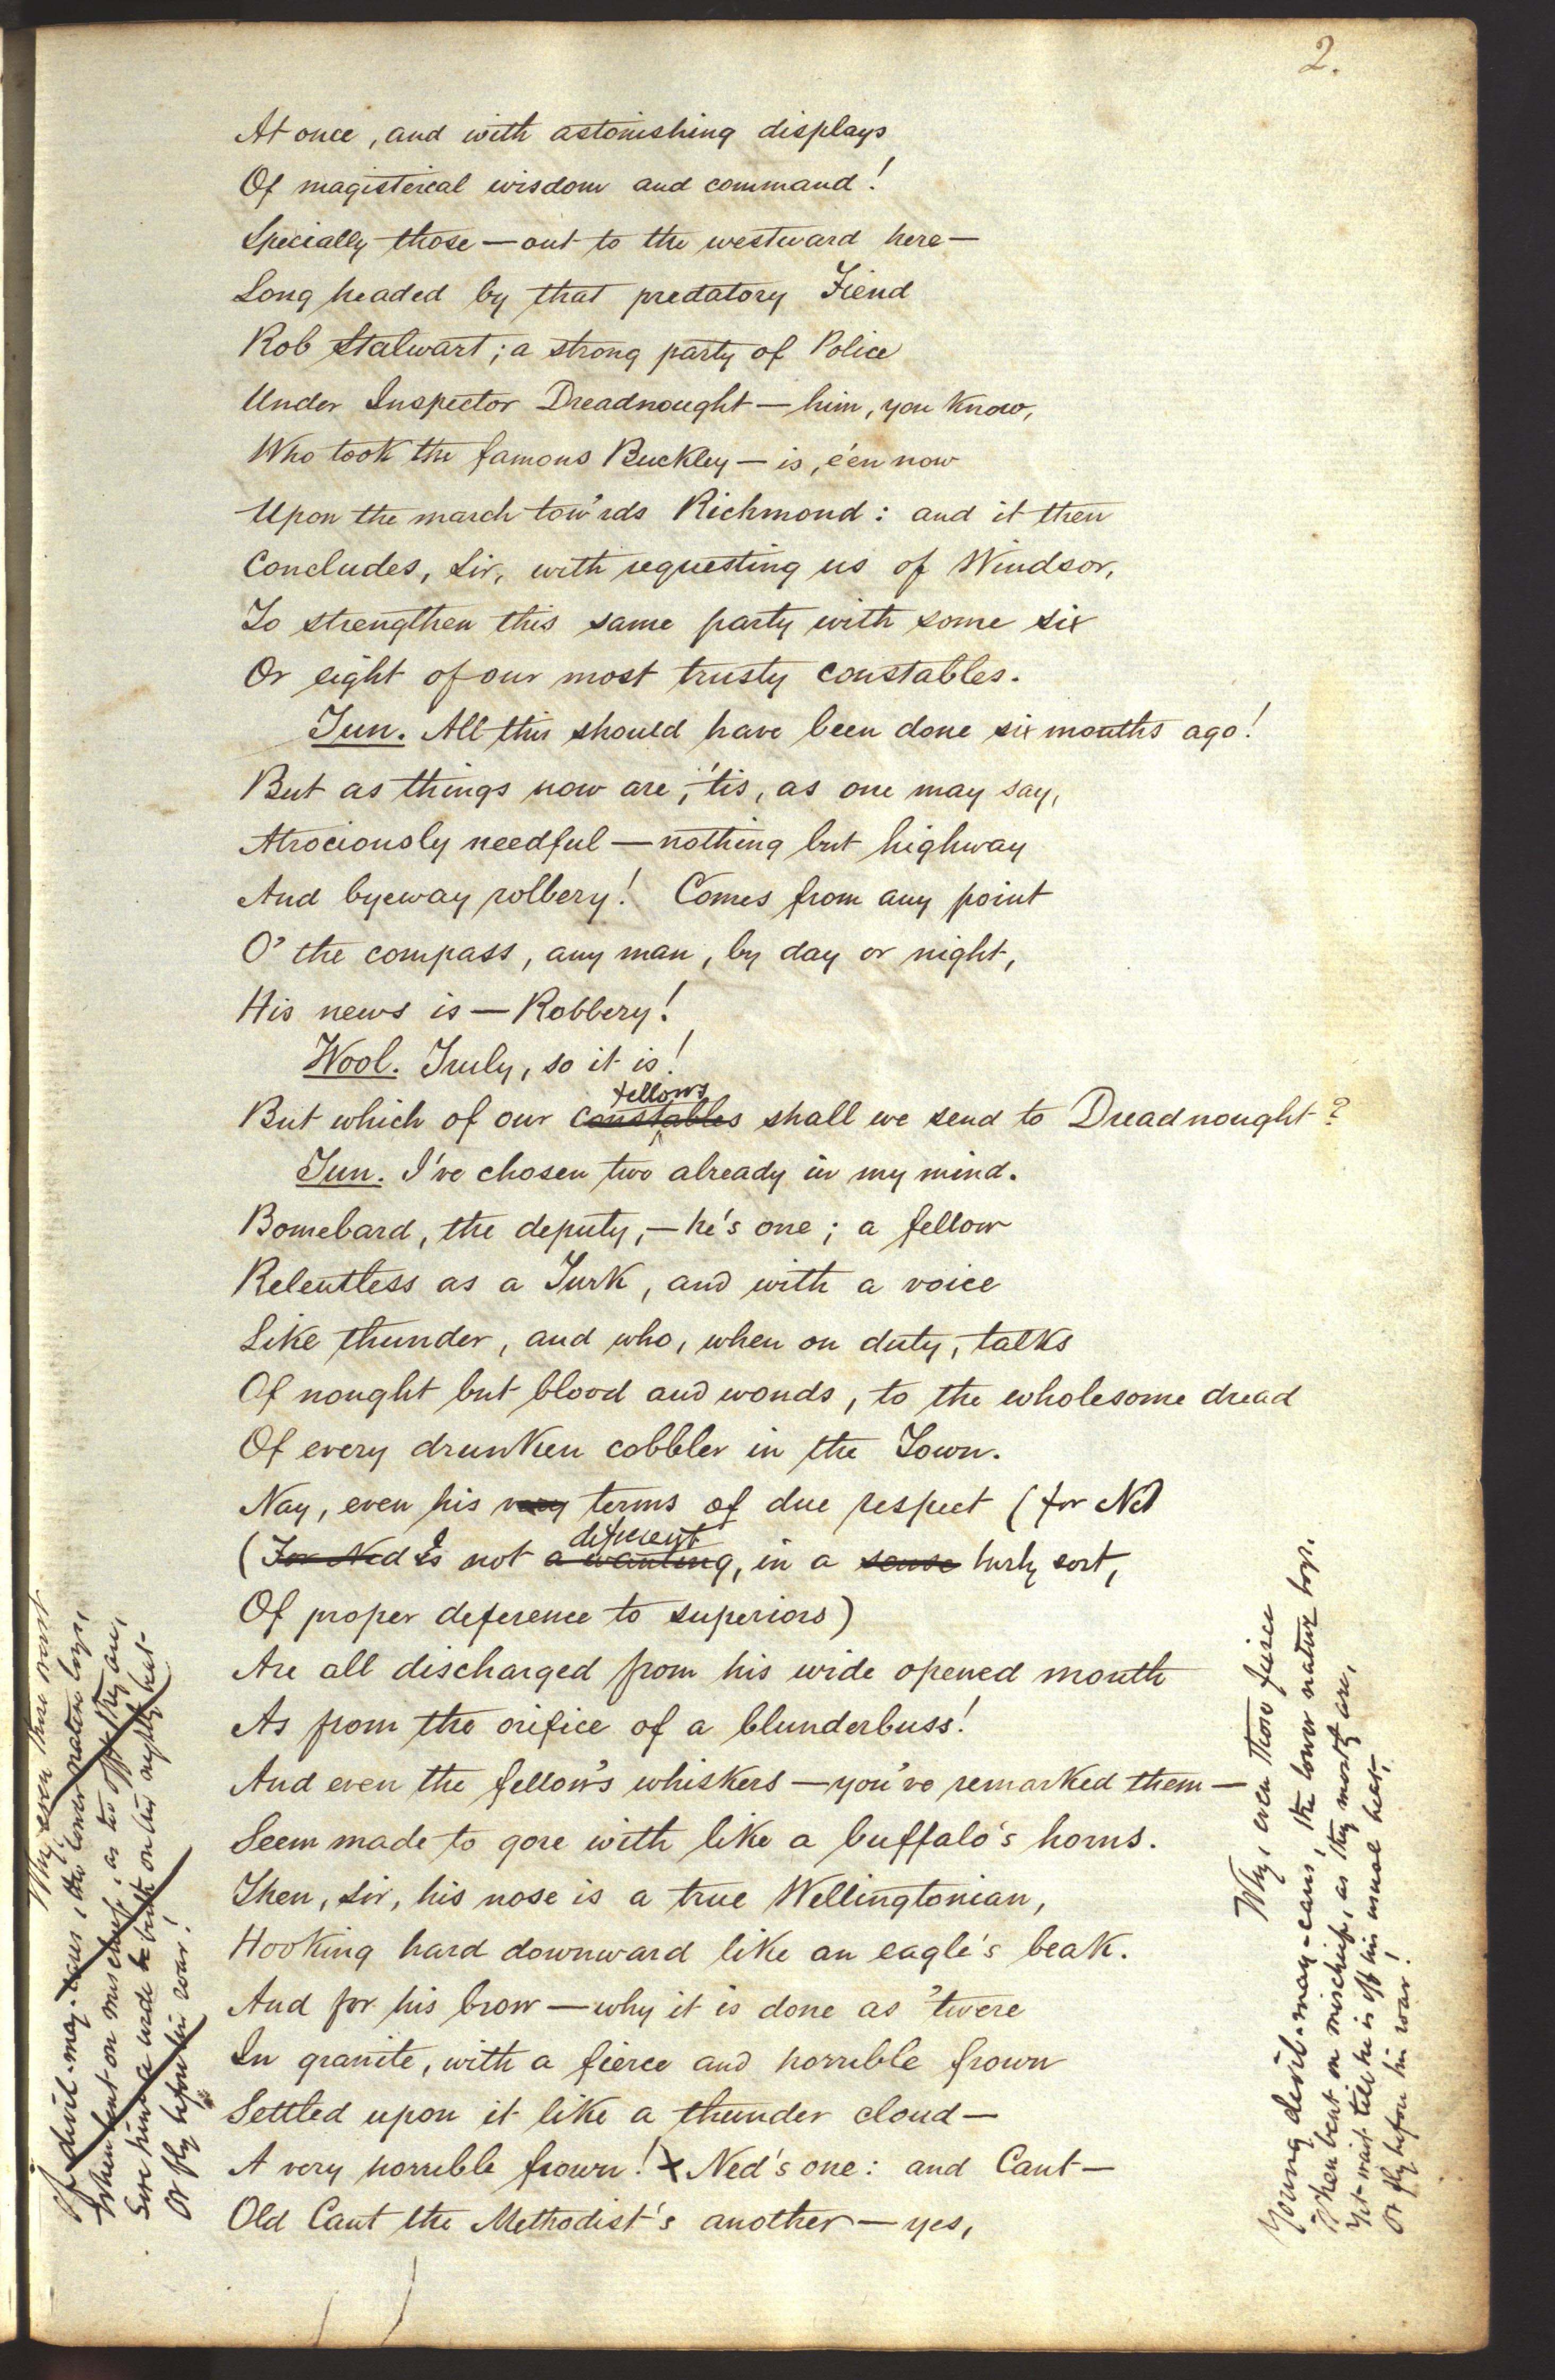 2.
At once, and with astonishing displays
Of magisterial wisdom and command!
Specially those — out to the westward here —
Long headed by that predatory Fiend
Rob Stalwart; a strong party of Police
Under Inspector Dreadnought — him, you know,
Who took the famous Buckley — is, e'en now
Upon the march tow'rds Richmond: and it then
Concludes, Sir, with requesting us of Windsor,
To strengthen this same party with some six
Or eight of our most trusty constables.
Jun. All this should have been done six months ago!
But as things now are, 'tis, as one may say,
Atrociously needful — nothing but highway
And byeway robbery! Comes from any point
O' the compass, any man, by day or night,
His news is — Robbery!
Wool. Truly, so it is!
fellows
But which of our constables shall we send to Dreadnought?
Jun. I've chosen two already in my mind.
Bomebard, the deputy, — he's one; a fellow
Relentless as a Turk, and with a voice
Like thunder, and who, when on duty, talks
Of nought but blood and wonds, to the wholesome dread
Of every drunken cobbler in the Town.
Nay, even his very terms of due respect (for Ned
deficient
(For Ned is not a wanting, in a sense burly sort,
Of proper deference to superiors)
Are all discharged from his wide opened mouth
As from the orifice of a blunderbuss!
And even the fellow's whiskers — you've remarked them —
Seem made to gore with like a buffalo's horns.
Then, Sir, his nose is a true Wellingtonian,
Hooking hard downward like an eagle's beak.
And for his brow — why it is done as 'twere
In granite, with a fierce and horrible frown
Settled upon it like a thunder cloud —
A very horrible frown! x Ned's one: and Cant —
Old Cant the Methodist's another — yes,
Why even those
Of devil-may-cares, the lower nature boys,
When bent on mischief, as too oft they are,
Give him a wide berth on his nightly beat —
Or fly before his roar!
Why, even those fierce
Young devil-may-cares, the lower nature boys.
When bent on mischief, as they mostly are,
Yet wait till he is off his usual beat,
Or fly before his roar!